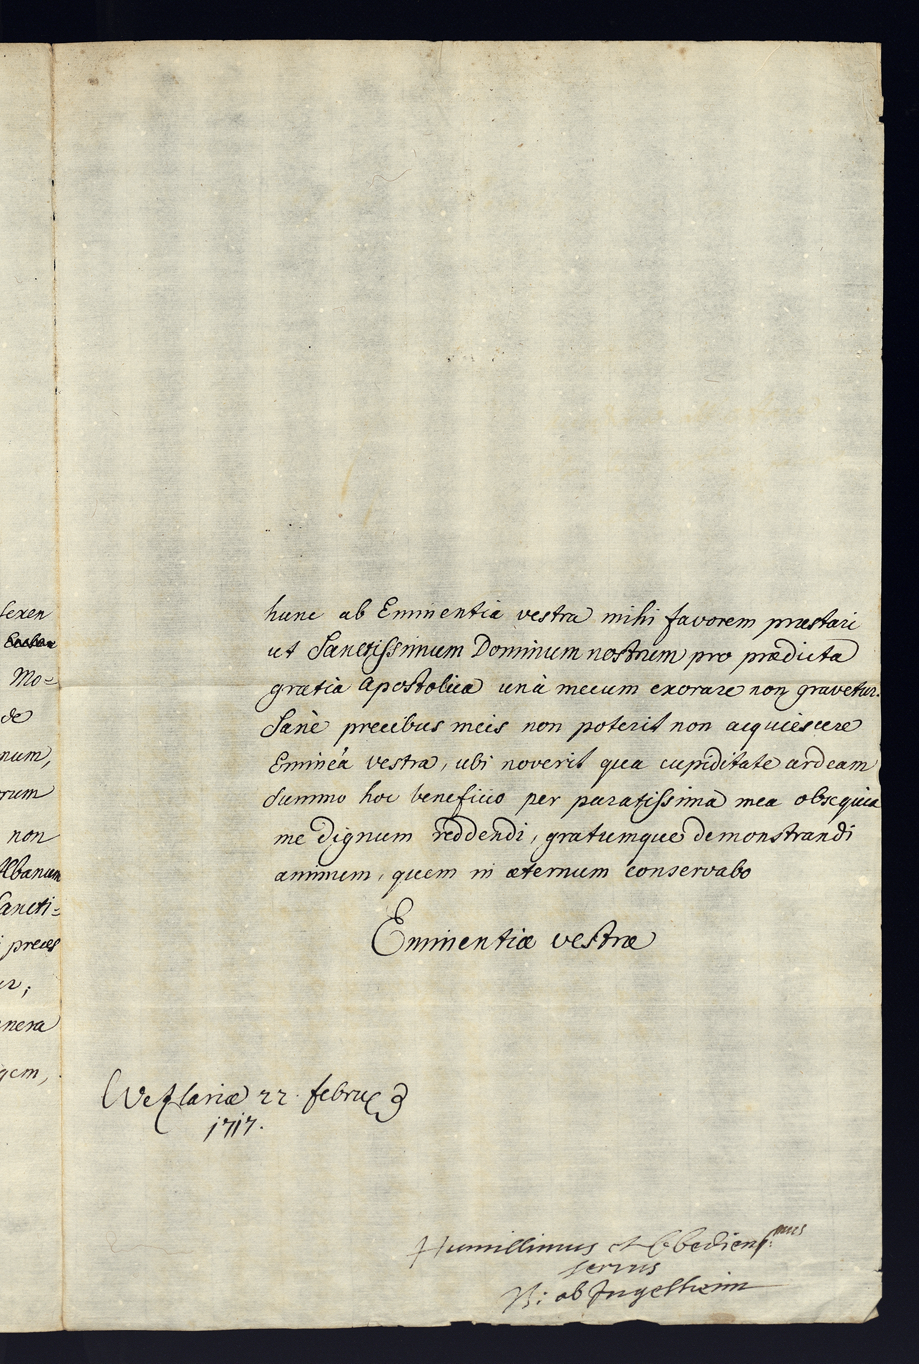 sexen
Mo=
de
num,
rum
non
Albanum
Sancti=
preces
ur;
nera
gem,
hunc ab Eminentia vestra mihi favorem præstari
ut Sanctissimum Dominum nostrum pro prædicta
gratia Apostolica unà mecum exorare non gravetur.
Sanè precibus meis non poterit non acquiescere
Eminẽa vestra, ubi noverit qua cupiditate ardeam
summo hoc beneficio per paratissima mea obsequia
me dignum reddendi, gratumque demonstrandi
animum, quem in æternum conservabo
Eminentiæ vestræ
Wezlariæ 22. febru
1717.
Humillimus et Obediens:mus
servus
ab Ingelheim